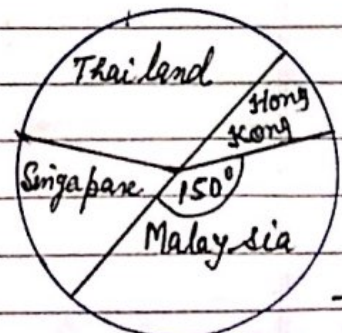 Thailand
Hong
Kong
Singapore
150°
Malaysia